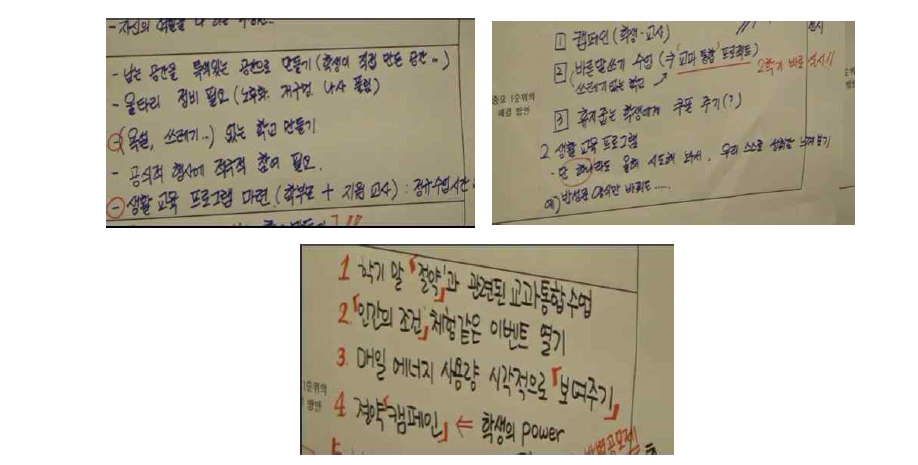 - 자신의 역할을
- 남는 공간을 특색있는 공간으로 만들기 (학생이 직접 만든 공간 ..)
- 울타리 정비 필요 (노후화, 지구멍, 나사 풀림)
- (욕설, 쓰레기..) 없는 학교 만들기
- 공식적 행사에 적극적 참여 필요.
- 생활 교육 프로그램 마련. (학부모 + 지원 교사) : 정규수업시간
1 캠페인 (학생·교사)
2 (바른말쓰기 수업 (주 '교과 통합' 프로젝트) 2학기 바로 실시!!
쓰레기없는 학교
중요 1순위의
해결 방안
3 휴지줍는 학생에게 쿠폰 주기(?)
2. 생활 교육 프로그램
- 단 하나라도 올해 시도해 봐서, 우리 스스로 성취감 느껴보기
예) 반성문 양식만 바꿔도.....
1 학기 말 「절약」과 관련된 교과통합수업
2. 「인간의 조건」 체험같은 이벤트 열기
3. 매일 에너지 사용량 시각적으로 「보여주기」
1순위의
방안
4 절약 「캠페인」 ⇐ 학생의 power